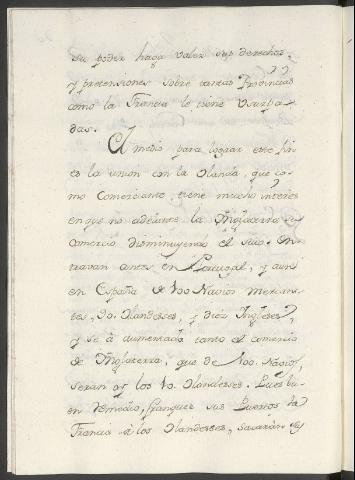 su poder haga valer sus derechos,
y pretensiones sobre tantas Provincias
como la Francia le tiene Usurpa-
das.
El medio para lograr este fin
es la union con la Olanda, que co-
mo Comerciante, tiene mucho interes
en que no adelante la Ynglaterra su
Comercio disminuyendo el suio. En-
travan antes en Portugal, y aun
en España de 100 Navios mercan-
tes, 90. Olandeses, y diez Yngleses,
y se à aumentado tanto el comercio
de Ynglaterra, que de 100. Navios,
seran oy los 10. Olandeses. Pues bu-
en remedio, franquee sus Puertos la
Francia à los Olandeses, sacaran